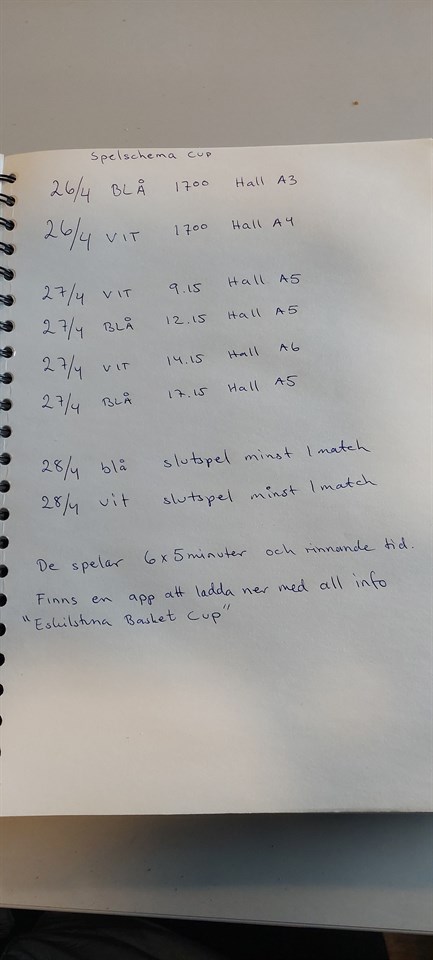 Spelschema cup
26/4 BLÅ 1700 Hall A3
26/4 VIT 1700 Hall A4
27/4 VIT 9.15 Hall A5
27/4 BLÅ 12.15 Hall A5
27/4 VIT 14.15 Hall A6
27/4 BLÅ 17.15 Hall A5
28/4 blå slutspel minst 1 match
28/4 vit slutspel minst 1 match
De spelar 6x5minuter och rinnande tid.
Finns en app att ladda ner med all info
"Eskilstuna Basket Cup"